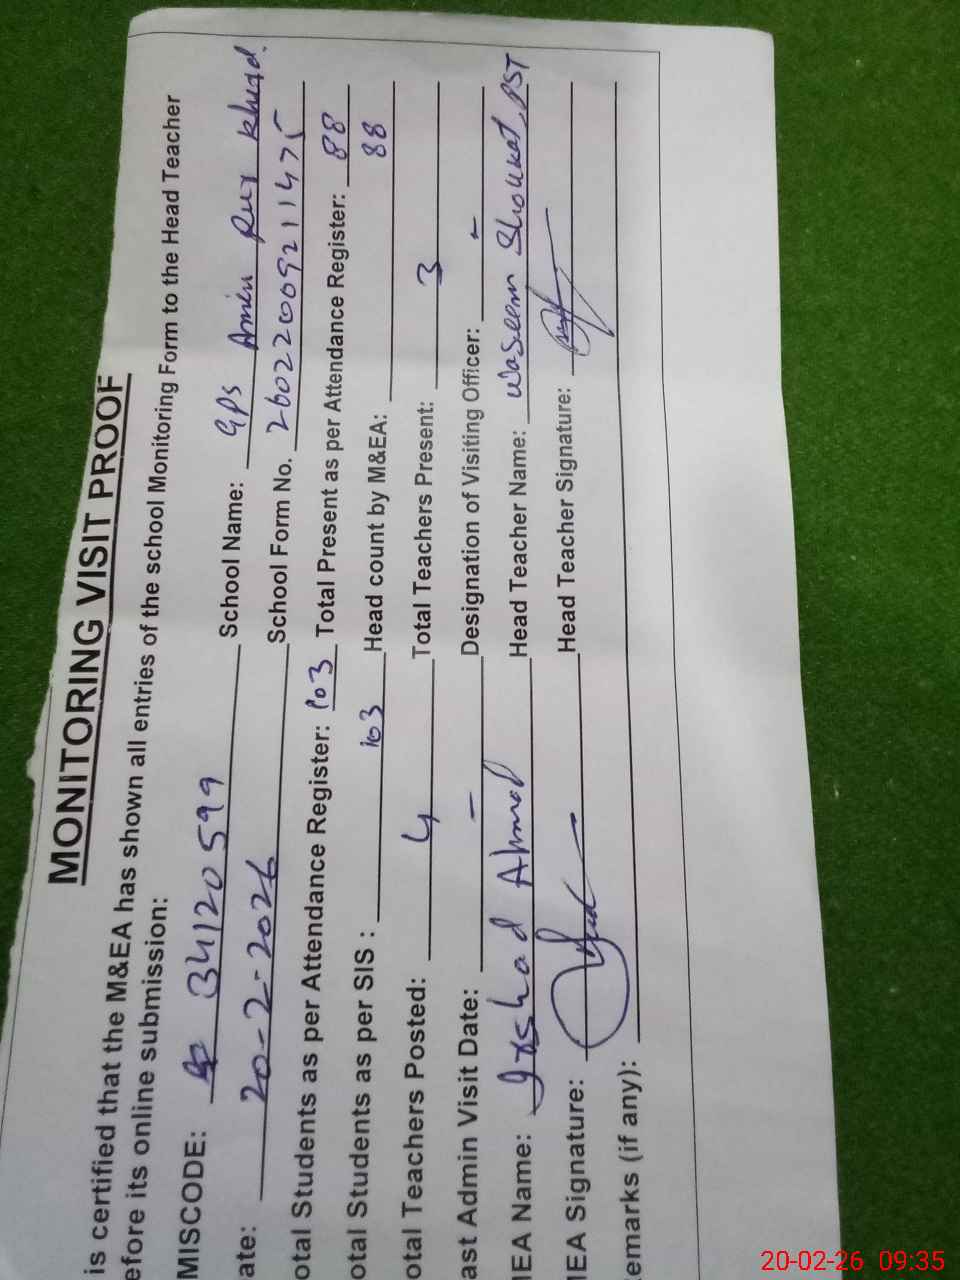 MONITORING VISIT PROOF
is certified that the M&EA has shown all entries of the school Monitoring Form to the Head Teacher
efore its online submission:
MISCODE: 34120599 School Name: GPS Amin Pur Khurd.
ate: 20-2-2026 School Form No. 260220092111475
otal Students as per Attendance Register: 103 Total Present as per Attendance Register: 88
otal Students as per SIS : 103 Head count by M&EA: 88
otal Teachers Posted: 4 Total Teachers Present: 3
ast Admin Visit Date: - Designation of Visiting Officer: -
IEA Name: Irshad Ahmad Head Teacher Name: Waseem Shoukat, PST
IEA Signature: Head Teacher Signature:
emarks (if any):
20-02-26 09:35